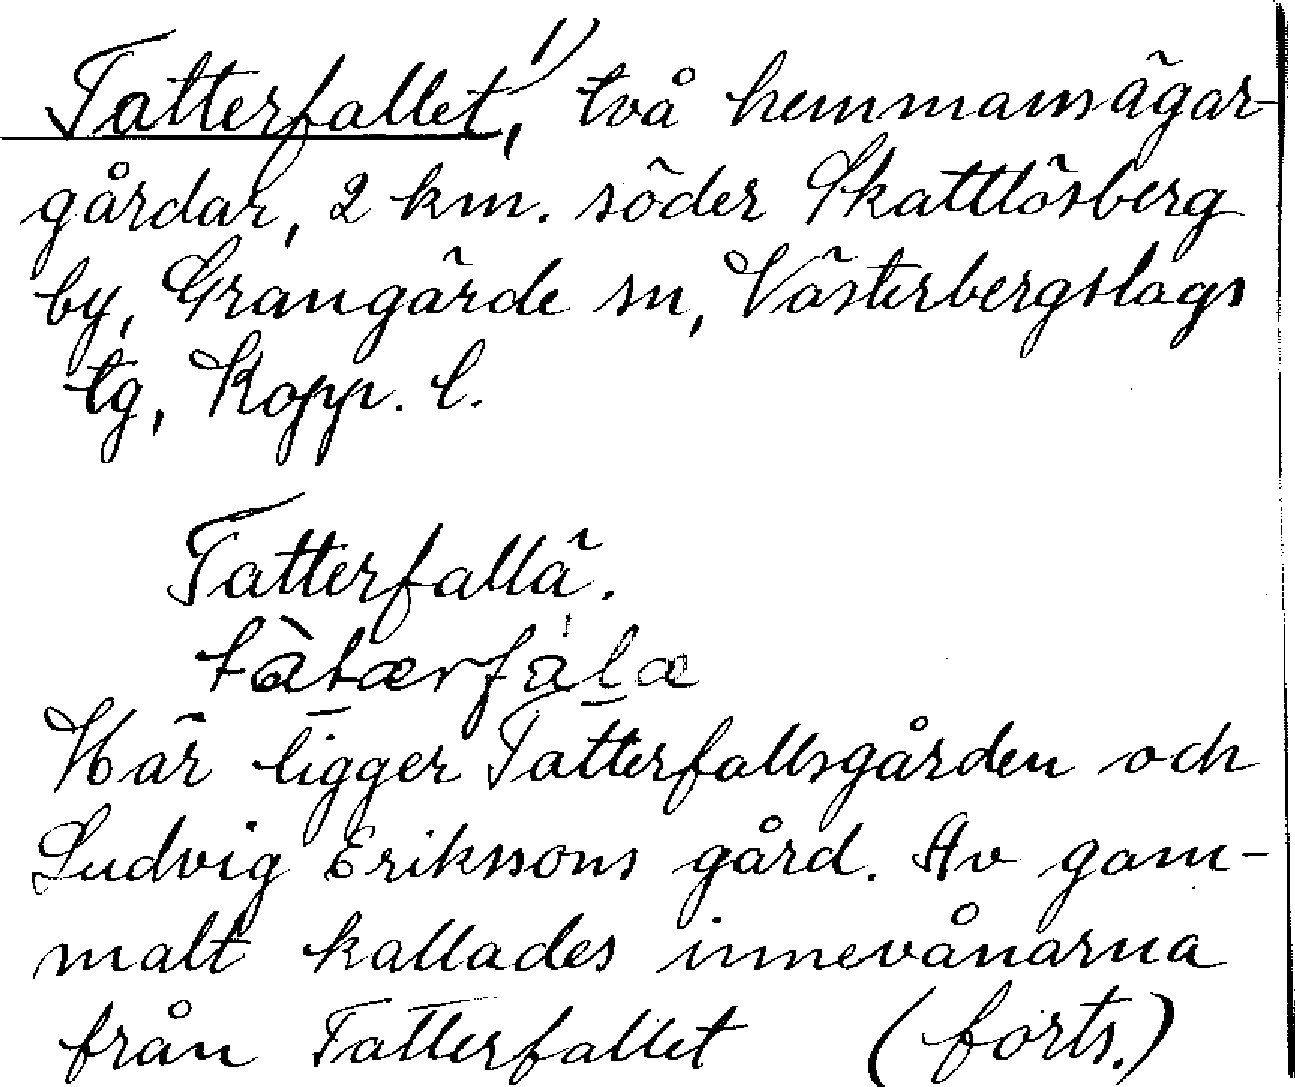 Tatterfallet,¹⁾ två hemmansägar-
gårdar, 2 km. söder Skattlösberg
by, Grangärde sn, Västerbergslags
tg, Kopp. l.
Tatterfallä.
tàtærfàlæ
Här ligger Tatterfallsgården och
Ludvig Erikssons gård. Av gam-
malt kallades innevånarna
från Tatterfallet (forts.)